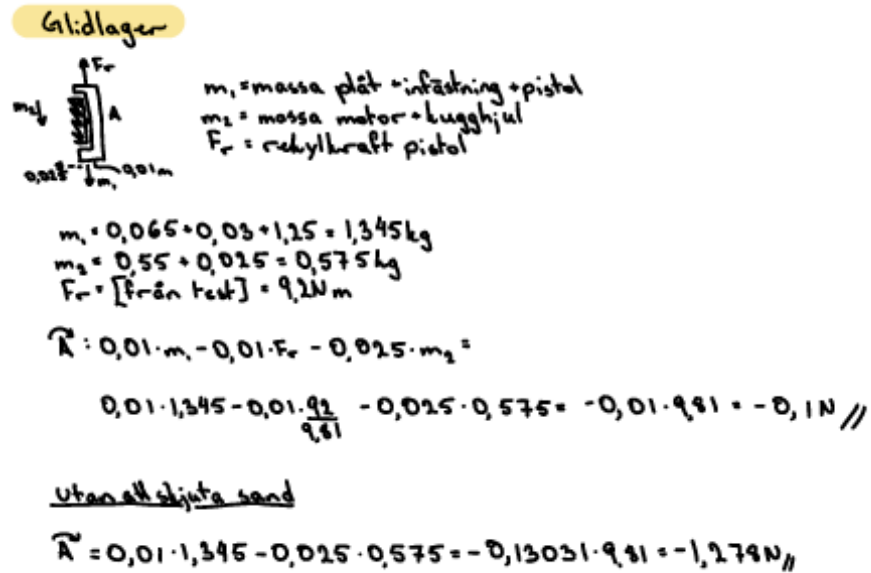 Glidlager
Fr
m₁ = massa plåt + infästning + pistol
m₂ A
m₂ = massa motor + kugghjul
Fr = rekylkraft pistol
0,01m
m₁
m₁ = 0,065 + 0,03 + 1,25 = 1,345 kg
m₂ = 0,55 + 0,025 = 0,575 kg
Fr = [från test] = 9,2N m
A : 0,01 · m₁ - 0,01 · Fr - 0,025 · m₂ =
0,01 · 1,345 - 0,01 · 9,2/9,81 - 0,025 · 0,575 = -0,01 · 9,81 = -0,1N //
Utan att skjuta sand
A = 0,01 · 1,345 - 0,025 · 0,575 = -0,13031 · 9,81 = -1,278N //